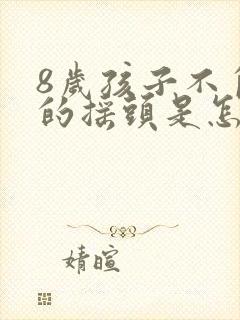 8歲孩子不
的搖頭是怎
婧暄